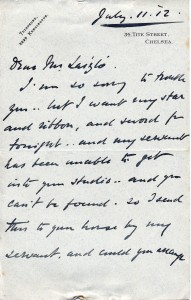 July. 11. 12.
TELEPHONE,
KENSINGTON.
TITE STREET,
CHELSEA.
Dear Mr László.
I am so sorry to trouble
you.. but I want my star
and ribbon, and sword for
tonight.. and my servant
has been unable to get
into your studio.. and you
can't be found. So I send
this to your house by my
servant, and could you arrange